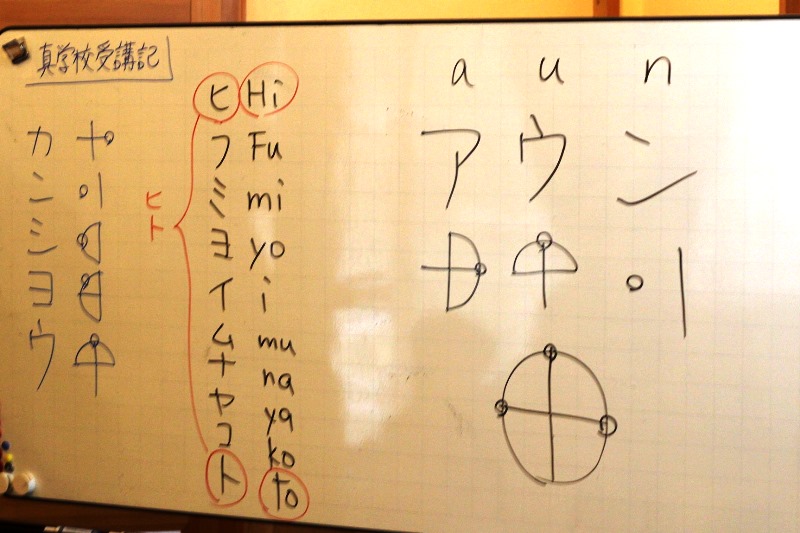 真学校受講記
カ
ン
ジ
ヨ
ウ
ヒ
ト
ヒ Hi
フ Fu
ミ mi
ヨ yo
イ i
ム mu
ナ na
ヤ ya
コ ko
ト to
a u n
ア ウ ン